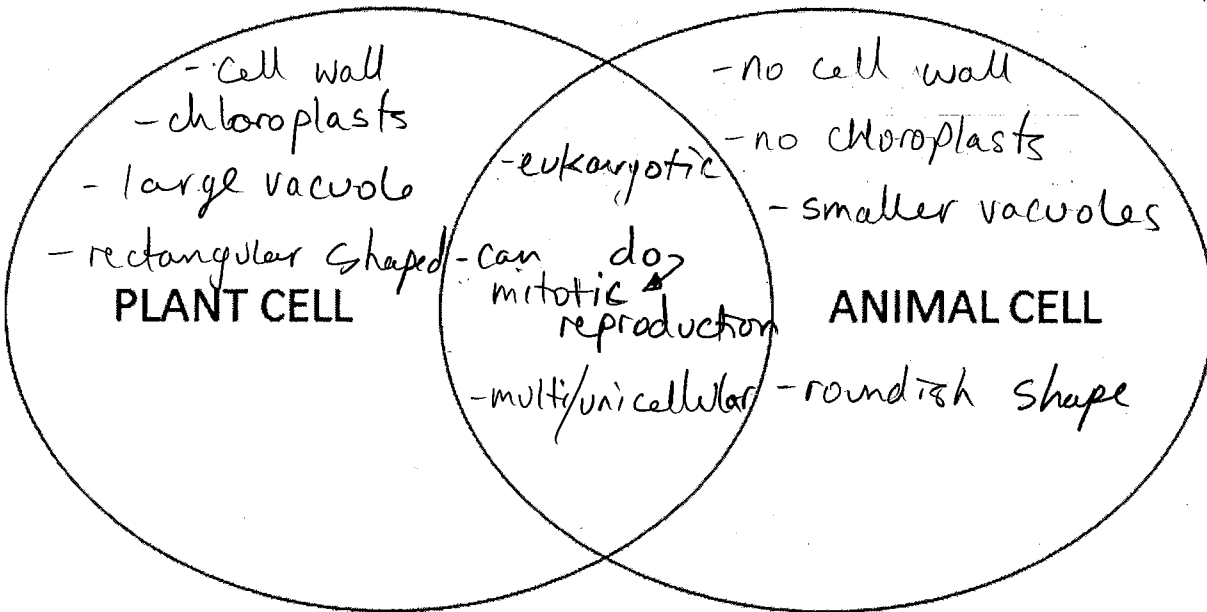 - cell wall
- chloroplasts
- large vacuole
- rectangular shaped
PLANT CELL
- eukaryotic
- can do
mitotic
reproduction
- multi/unicellular
- no cell wall
- no chloroplasts
- smaller vacuoles
ANIMAL CELL
- roundish shape